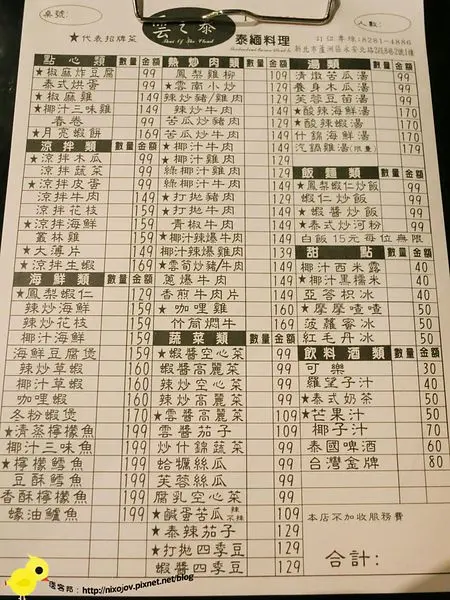 桌號:
人數:
★代表招牌菜
雲之泰
泰緬料理
訂位專線:8281-4886
點心類 數量 金額
★椒麻炸豆腐 99
泰式烘蛋 99
★椒麻雞 149
★椰汁三味雞 149
春卷 99
★月亮蝦餅 169
涼拌類 數量 金額
★涼拌木瓜 99
涼拌蔬菜 99
★涼拌皮蛋 99
涼拌牛肉 149
涼拌花枝 159
★涼拌海鮮 159
叢林雞 159
★大薄片 149
★涼拌生蝦 169
海鮮類 數量 金額
★鳳梨蝦仁 129
辣炒海鮮 159
辣炒花枝 159
椰汁海鮮 159
海鮮豆腐煲 159
辣炒草蝦 160
椰汁草蝦 160
咖哩蝦 160
冬粉蝦煲 170
★清蒸檸檬魚 199
椰汁三味魚 199
★檸檬鱈魚 199
豆酥鱈魚 199
香酥檸檬魚 199
蠔油鱸魚 199
熱炒肉類 數量 金額
鳳梨雞柳 109
★雲南小炒 129
辣炒豬/雞肉 109
辣炒牛肉 129
苦瓜炒豬肉 109
苦瓜炒牛肉 129
★椰汁牛肉 149
★椰汁雞肉 129
綠椰汁雞肉 129
綠椰汁牛肉 149
★打拋豬肉 129
★打拋牛肉 149
青椒牛肉 149
★椰汁辣爆牛肉 149
椰汁辣爆豬肉 139
★雲筍炒豬/牛肉
蔥爆牛肉 149
香煎牛肉片 149
★咖哩雞 160
竹筒燜牛 169
蔬菜類 數量 金額
★蝦醬空心菜 99
蝦醬高麗菜 99
辣炒空心菜 99
辣炒高麗菜 99
★雲醬高麗菜 109
雲醬茄子 109
炒什錦蔬菜 99
蛤蠣絲瓜 99
芙蓉絲瓜 99
腐乳空心菜 99
★鹹蛋苦瓜 辣 不辣 109
★泰辣茄子 129
★打拋四季豆 129
蝦醬四季豆 129
湯類 數量 金額
清燉苦瓜湯 99
養身木瓜湯 99
芙蓉豆苗湯 99
★酸辣海鮮湯 170
★酸辣蝦湯 170
什錦海鮮湯 170
汽鍋雞湯 179
飯麵類 數量 金額
★鳳梨蝦仁炒飯 99
蝦仁炒飯 99
★蝦醬炒飯 99
★泰式炒河粉 99
白飯15元每位無限
甜點 數量 金額
椰汁西米露 40
★椰汁黑糯米 40
亞答枳冰 40
★摩摩喳喳 50
菠蘿蜜冰 50
紅毛丹冰 50
飲料酒類 數量 金額
可樂 30
羅望子汁 40
★泰式奶茶 50
★芒果汁 50
椰子汁 70
泰國啤酒 60
台灣金牌 80
本店不加收服務費
合計:
痞客邦:http://nixojov.pixnet.net/blog